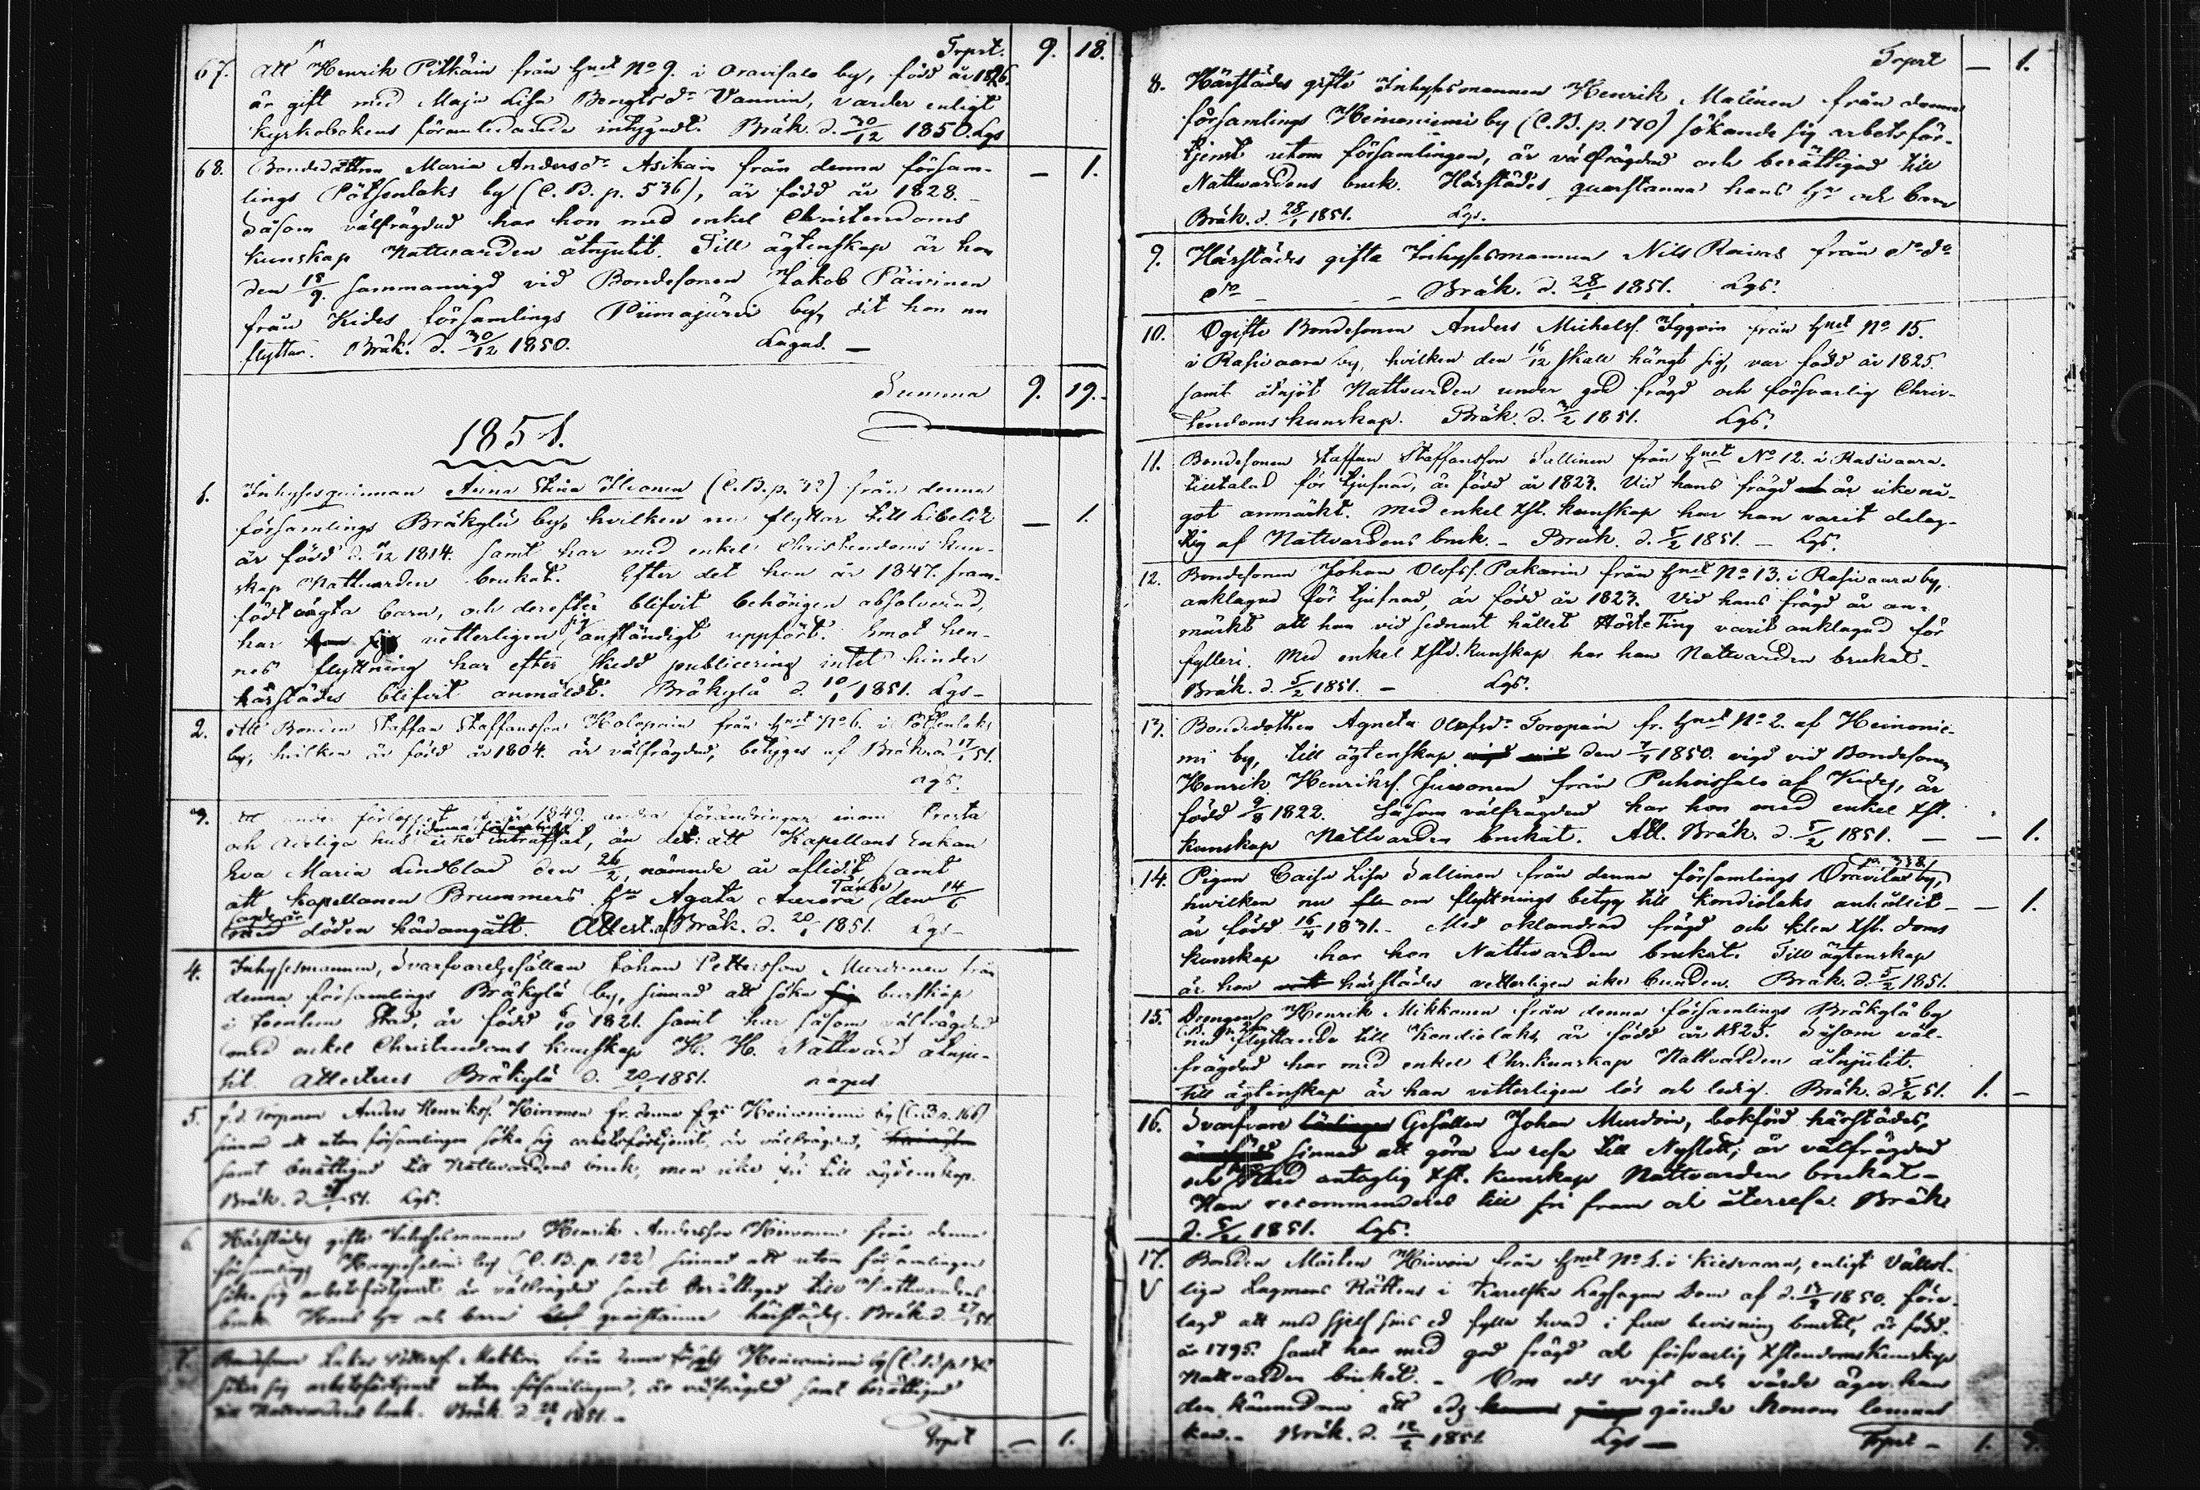 Trpt. 9. 18.
67. Att Henrik Pitkäin från Hmet No 9. i Oravisalo by, född år 1826.
är gift med Maja Lisa Bengtsdr Vannin, varder enligt
kyrkobokens föranledande intygadt. Bräk. d. 30/12 1850. Lgs
68. Bondedottren Maria Andersdr Asikain från denna försam-
lings Pötsönlaks by (C. B. p. 536), är född år 1828. – 1.
Såsom välfrägdad har hon med enkel Christendoms
kunskap Nattvarden åtnjutit. Till ägtenskap är hon
den 15/9. sammanvigd vid Bondesonen Jakob Päivinen
från Kides församlings Piimäjärvi by, dit hon nu
flyttar. Bräk. d. 30/12 1850. Lagus. –
Summa 9. 19.
1851.
1. Inhysesqvinnan Anna Stina Ilvonen (C.B.p. 32) från denna
församlings Bräkylä by, hvilken nu flyttar till Libelits – 1.
är född d. /12 1814. samt har med enkel Christendoms kun-
skap Nattvarden brukat. Efter det hon år 1847. fram-
födt oägta barn, och derefter blifvit behörigen absolverad,
har vetterligen sig anständigt uppfört. Emot hen-
nes flyttning har efter skedd publicering intet hinder
härstädes blifvit anmäldt. Bräkylä d. 10/1 1851. Lgs –
2. Att Bonden Staffan Staffansson Holopain från Hmet No 6. i Pötsönlaks
by, hvilken är född år 1804. är välfrägdad, betygas af Bräk. d. 17/1 51.
Lgs.
3. Att under förloppet af år 1849. andra förändringar inom Presta
och Adeliga hus i denna församling icke inträffat, än det: att Kapellans Enkan
Eva Maria Lindblad den 26/2, nämnde år aflidit samt
att Kapellanen Brummers Hu Agata Aurora Taube den 14/6
med döden hädangått. Attest. Bräk. d. 20/1 1851. Lgs –
4. Inhysesmannen, Svarfvaregesällen Johan Pettersson Murdonen från
denna församlings Bräkylä by, sinnad att söka burskap
i Joensuu Stad, är född 6/10 1821. samt har såsom välfrägdad
med enkel Christendoms kunskap H. H. Nattvard åtnju-
tit. Attesteres Bräkylä d. 20/1 1851. Lagus
5. f.d. Torparen Anders Henrikss. Hirvonen fr. denna fgs Heinoniemi by (C.B.p. 166)
sinnad att utom församlingen söka sig arbetsförtjenst, är välfrägdad,
samt berättigad till Nattvardens bruk, men icke fri till ägtenskap.
Bräk. d. 51. Lgs.
6. Härstädes gifte Inhysesmannen Henrik Andersson Hirvonen från denna
församlings by (C. B. p. 122) sinnad att utom församlingen
söka sig arbetsförtjenst är välfrägdad samt berättigad till Nattvardens
bruk. Hans Hu och barn qvarstanna härstädes. Bräk. d. 27/1 51.
7. Bondesonen Lukas från denna förgs Heinoniemi by (C.B.p.
söker sig arbetsförtjenst utom församlingen, är välfrägdad samt berättigad
till Nattvardens bruk. Bräk. d. 28/1 1851. –
Trpt – 1.
Trpt – 1.
8. Härstädes gifte Inhysesmannen Henrik Malinen från denna
församlings Heinoniemi by (C.B.p. 170) sökande sig arbetsför-
tjenst utom församlingen, är välfrägdad och berättigad till
Nattvardens bruk. Härstädes qvarstanna hans Hu och barn
Bräk. d. 28/1 1851. Lgs.
9. Härstädes gifte Inhysesmannen Nils Raivas från do do
do – – – Bräk. d. 28/1 1851. Lgs.
10. Ogifte Bondesonen Anders Michelss. Iggoin från Hmet No 15.
i Rasivaara by, hvilken den 16/12 skall hängt sig, var född år 1825.
samt åtnjöt Nattvarden under god frägd och försvarlig Chris-
tendoms kunskap. Bräk. d. 3/2 1851. Lgs.
11. Bondesonen Staffan Staffansson Sallinen från Hmet No 12. i Rasivaara.
tilltalad för tjufnad, är född år 1823. Vid hans frägd är icke nå-
got anmärkt. Med enkel Xst. kunskap har han varit delag-
tig af Nattvardens bruk. – Bräk. d. 5/2 1851. – Lgs.
12. Bondesonen Johan Olofss. Pakarin från Hmet No 13. i Rasivaara by,
anklagad för tjufnad, är född år 1823. Vid hans frägd är an-
märkt att han vid sednast hållet Höste Ting varit anklagad för
fylleri. Med enkel Xstd. kunskap har han Nattvarden brukat.
Bräk. d. 5/2 1851. – Lgs.
13. Bondedottren Agneta Olofsdr Toropain fr. Hmet No 2. af Heinonie-
mi by, till ägtenskap den 7/1 1850. vigd vid Bondesonen
Henrik Henrikss. Juvonen från Puhoissalo af Kides, är
född 9/8 1822. Såsom välfrägdad har hon med enkel Xst.
kunskap Nattvarden brukat. Att. Bräk. d. 5/2 1851. – – 1.
14. Pigan Caisa Lisa Sallinen från denna församlings Oravilax by, p. 338
hvilken nu om flyttnings betyg till Kondiolaks anhållit – – 1.
är född 16/4 1831. – Med oklandrad frägd och klen Xst. doms
kunskap har hon Nattvarden brukat. Till ägtenskap
är hon härstädes vetterligen icke bunden. Bräk. d. 5/2 1851.
15. Drengen Henrik Mikkonen från denna församlings Bräkylä by
flyttande till Kondiolaks är född år 1825. Såsom väl-
frägdad har med enkel Chr. kunskap Nattvarden åtnjutit.
till ägtenskap är han vetterligen lös och ledig. Bräk. d. 5/2 51. 1. –
16. Svarfvare Gesällen Johan Murdoin, bokförd härstädes,
sinnad att göra en resa till Nyslott, är välfrägdad
och med antaglig Xst. kunskap Nattvarden brukat –
Han recommenderas till fri fram och återresa. Bräk.
d. 5/2 1851. Lgs.
17. Bonden Mårten Hirvoin från Hmet No 1. i Kiesvaara, enligt Vällof-
V liga Lagmans Rättens i Karelska Lagsagan Dom af d. 1850. före-
lagd att med sjelf sins ed fylla hvad i full bevisning brustit, är född
år 1795. samt har med god frägd och försvarlig Xstendomskunskap
Nattvarden brukat. – Om eds vigt och värde äger han
den kännedom att edg gående Monom lemnas
kan. – Bräk. d. 12/2 1851 Lgs – Trpt – 1. 3.